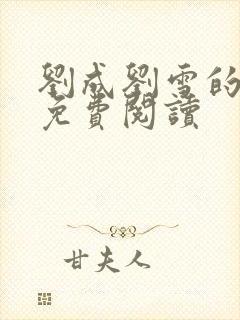 劉成劉雪的
免費閱讀
甘夫人